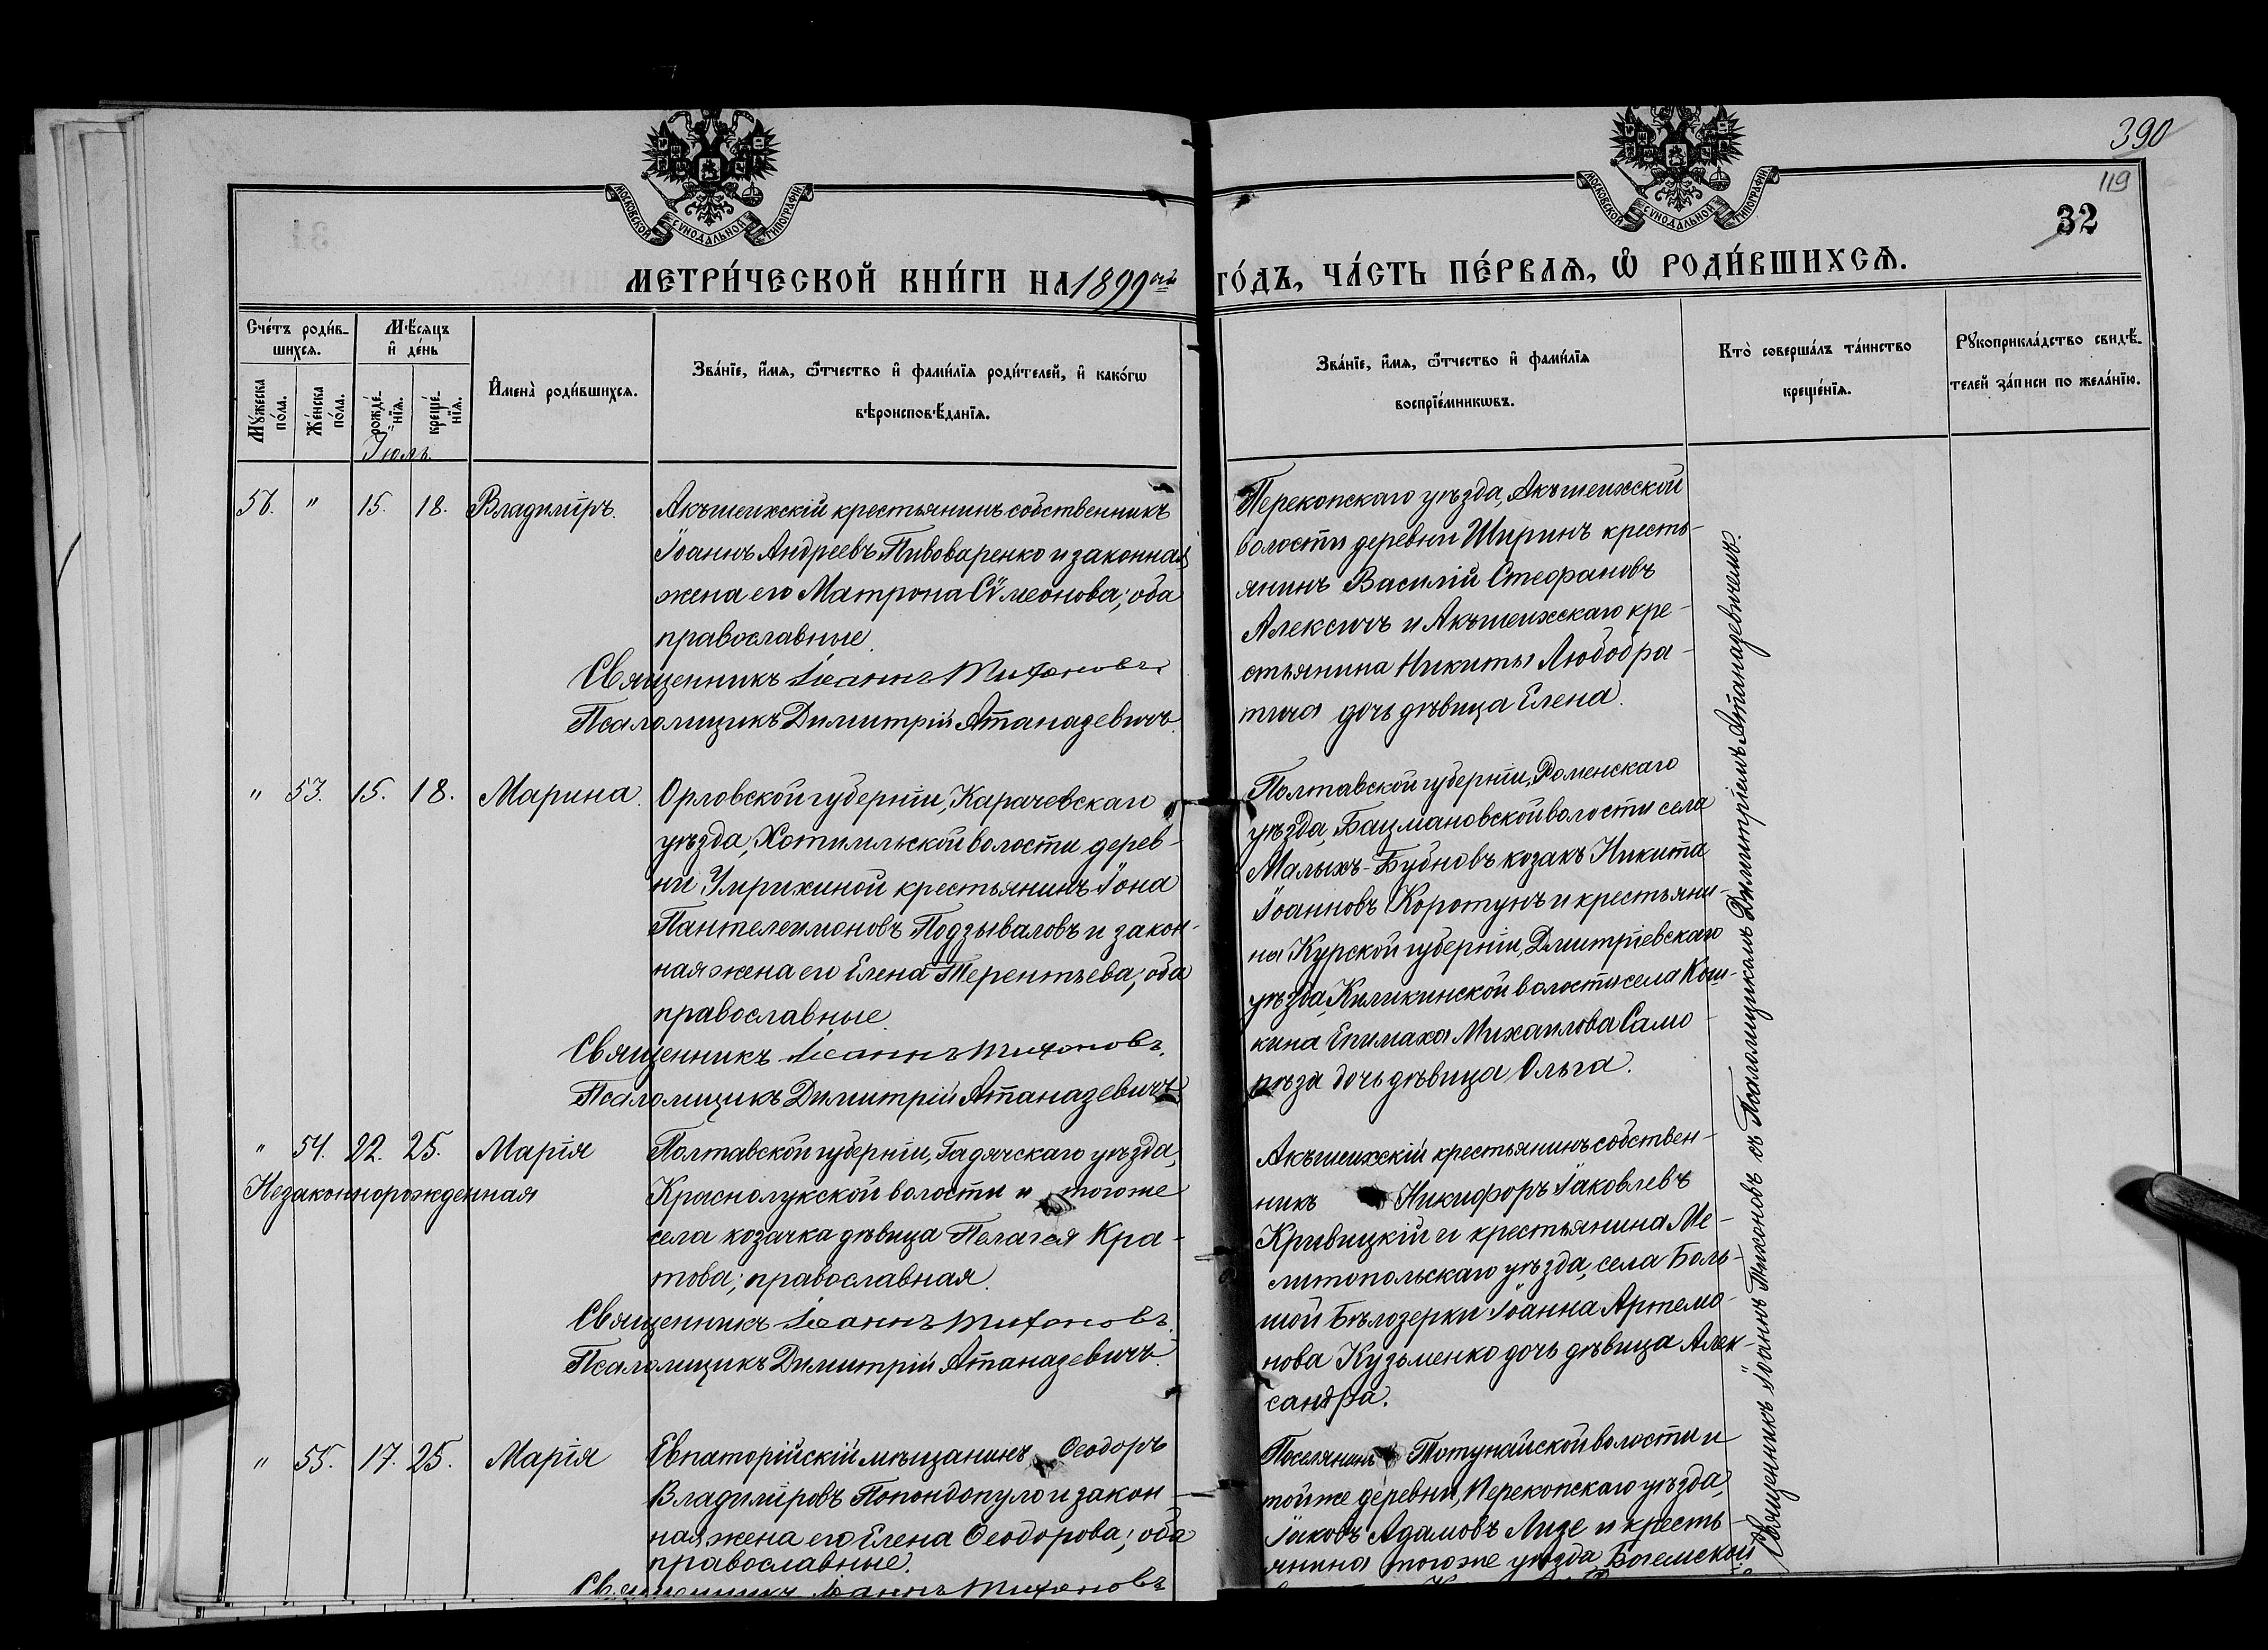 390
119
32
МОСКОВСКОЙ СѴНОДАЛЬНОЙ ТИПОГРАФІИ
МОСКОВСКОЙ СѴНОДАЛЬНОЙ ТИПОГРАФІИ
МЕТРИ́ЧЕСКОЙ КНИ́ГИ НА 1899ый ГО́ДЪ, ЧА́СТЬ ПЕ́РВАЯ, Ѡ҆ РОДИ́ВШИХСЯ.
Сче́тъ роди́в-
шихся.
Мꙋ́жеска
по́ла.
Же́нска
по́ла.
Мѣ́сяцъ
и҆ де́нь
рожде́-
нїя.
креще́-
нїя.
Іюль.
И҆мена̀ роди́вшихся.
Зва́нїе, и҆́мя, ѻ҆́тчество и҆ фами́лїя роди́телей, и҆ како́гѡ
вѣроисповѣ́данїя.
Зва́нїе, и҆́мя, ѻ҆́тчество и҆ фами́лїя
воспрїе́мникѡвъ.
Кто̀ соверша́лъ та́инство
креще́нїя.
Рꙋкоприкла́дство свидѣ́-
телей за́писи по жела́нїю.
56. " 15. 18. Владиміръ.
Акъшеихскій крестьянинъ собственникъ
Іоаннъ Андреевъ Пивоваренко и законная
жена его Матрона Сѵмеонова; оба
православные.
Священникъ Іоаннъ Тихоновъ
Псаломщикъ Димитрій Атаназевичъ.
Перекопскаго уѣзда, Акъшеихской
волости деревни Ширинъ кресть-
янинъ Василій Стефановъ
Алексичъ и Акъшеихскаго кре-
стьянина Никиты Любобра-
тича дочь дѣвица Елена.
" 53. 15. 18. Марина.
Орловской губерніи, Карачевскаго
уѣзда, Хотимльской волости дерев-
ни Умрихиной крестьянинъ Іона
Пантелеимоновъ Подзываловъ и закон-
ная жена его Елена Терентьева; оба
православные.
Священникъ Іоаннъ Тихоновъ.
Псаломщикъ Димитрій Атаназевичъ
Полтавской губерніи, Роменскаго
уѣзда, Бацмановской волости села
Малыхъ-Бубновъ козакъ Никита
Іоанновъ Коротунъ и крестьяни-
на Курской губерніи, Дмитріевскаго
уѣзда, Киликинской волости села Кош-
кина Епимаха Михаилова Само-
рѣза дочь дѣвица Ольга.
" 54. 22. 25. Марія
Незаконнорожденная
Полтавской губерніи, Гадячскаго уѣзда,
Краснолукской волости и тогоже
села козачка дѣвица Пелагея Кра-
това; православная.
Священникъ Іоаннъ Тихоновъ.
Псаломщикъ Димитрій Атаназевичъ.
Акъшеихскій крестьянинъ собствен-
никъ Никифоръ Іаковлевъ
Кривицкій и крестьянина Ме-
литопольскаго уѣзда, села Боль-
шой Бѣлозерки Іоанна Артемо-
нова Кузьменко дочь дѣвица Алек-
сандра.
" 55. 17. 25. Марія
Евпаторійскій мѣщанинъ Ѳеодоръ
Владиміровъ Попондопуло и закон-
ная жена его Елена Ѳеодорова; оба
православные.
Священникъ Іоаннъ Тихоновъ
Поселянинъ Тотунайской волости и
тойже деревни, Перекопскаго уѣзда,
Іаковъ Адамовъ Лизе и кресть-
янина тогоже уѣзда, Богемской
Священникъ Іоаннъ Тихоновъ съ Псаломщикомъ Димитріемъ Атаназевичемъ.